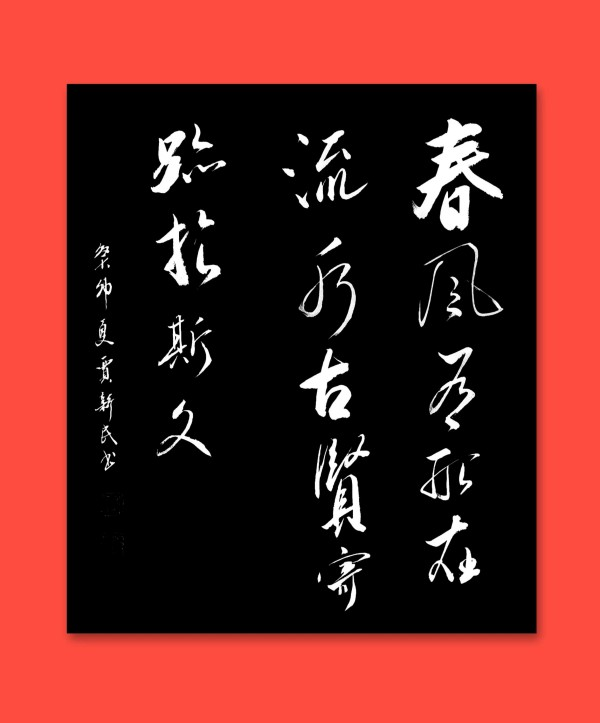 春風有形在
流水古賢寄
跡於斯文
癸卯夏賈新民书